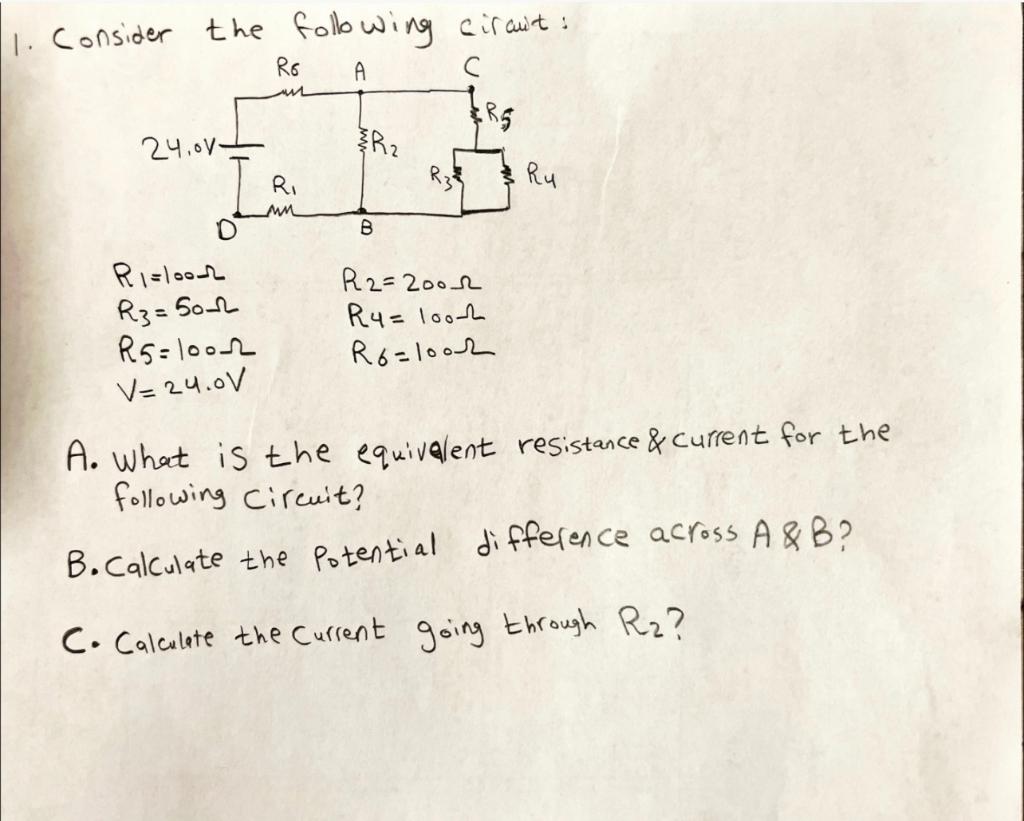 1. Consider the following circuit:
R6 A C
R5
24.0V R2
R3 R4
R1
D B
R1=100Ω R2=200Ω
R3=50Ω R4=100Ω
R5=100Ω R6=100Ω
V=24.0V
A. What is the equivalent resistance & current for the
following circuit?
B. Calculate the Potential difference across A & B?
C. Calculate the Current going through R2?